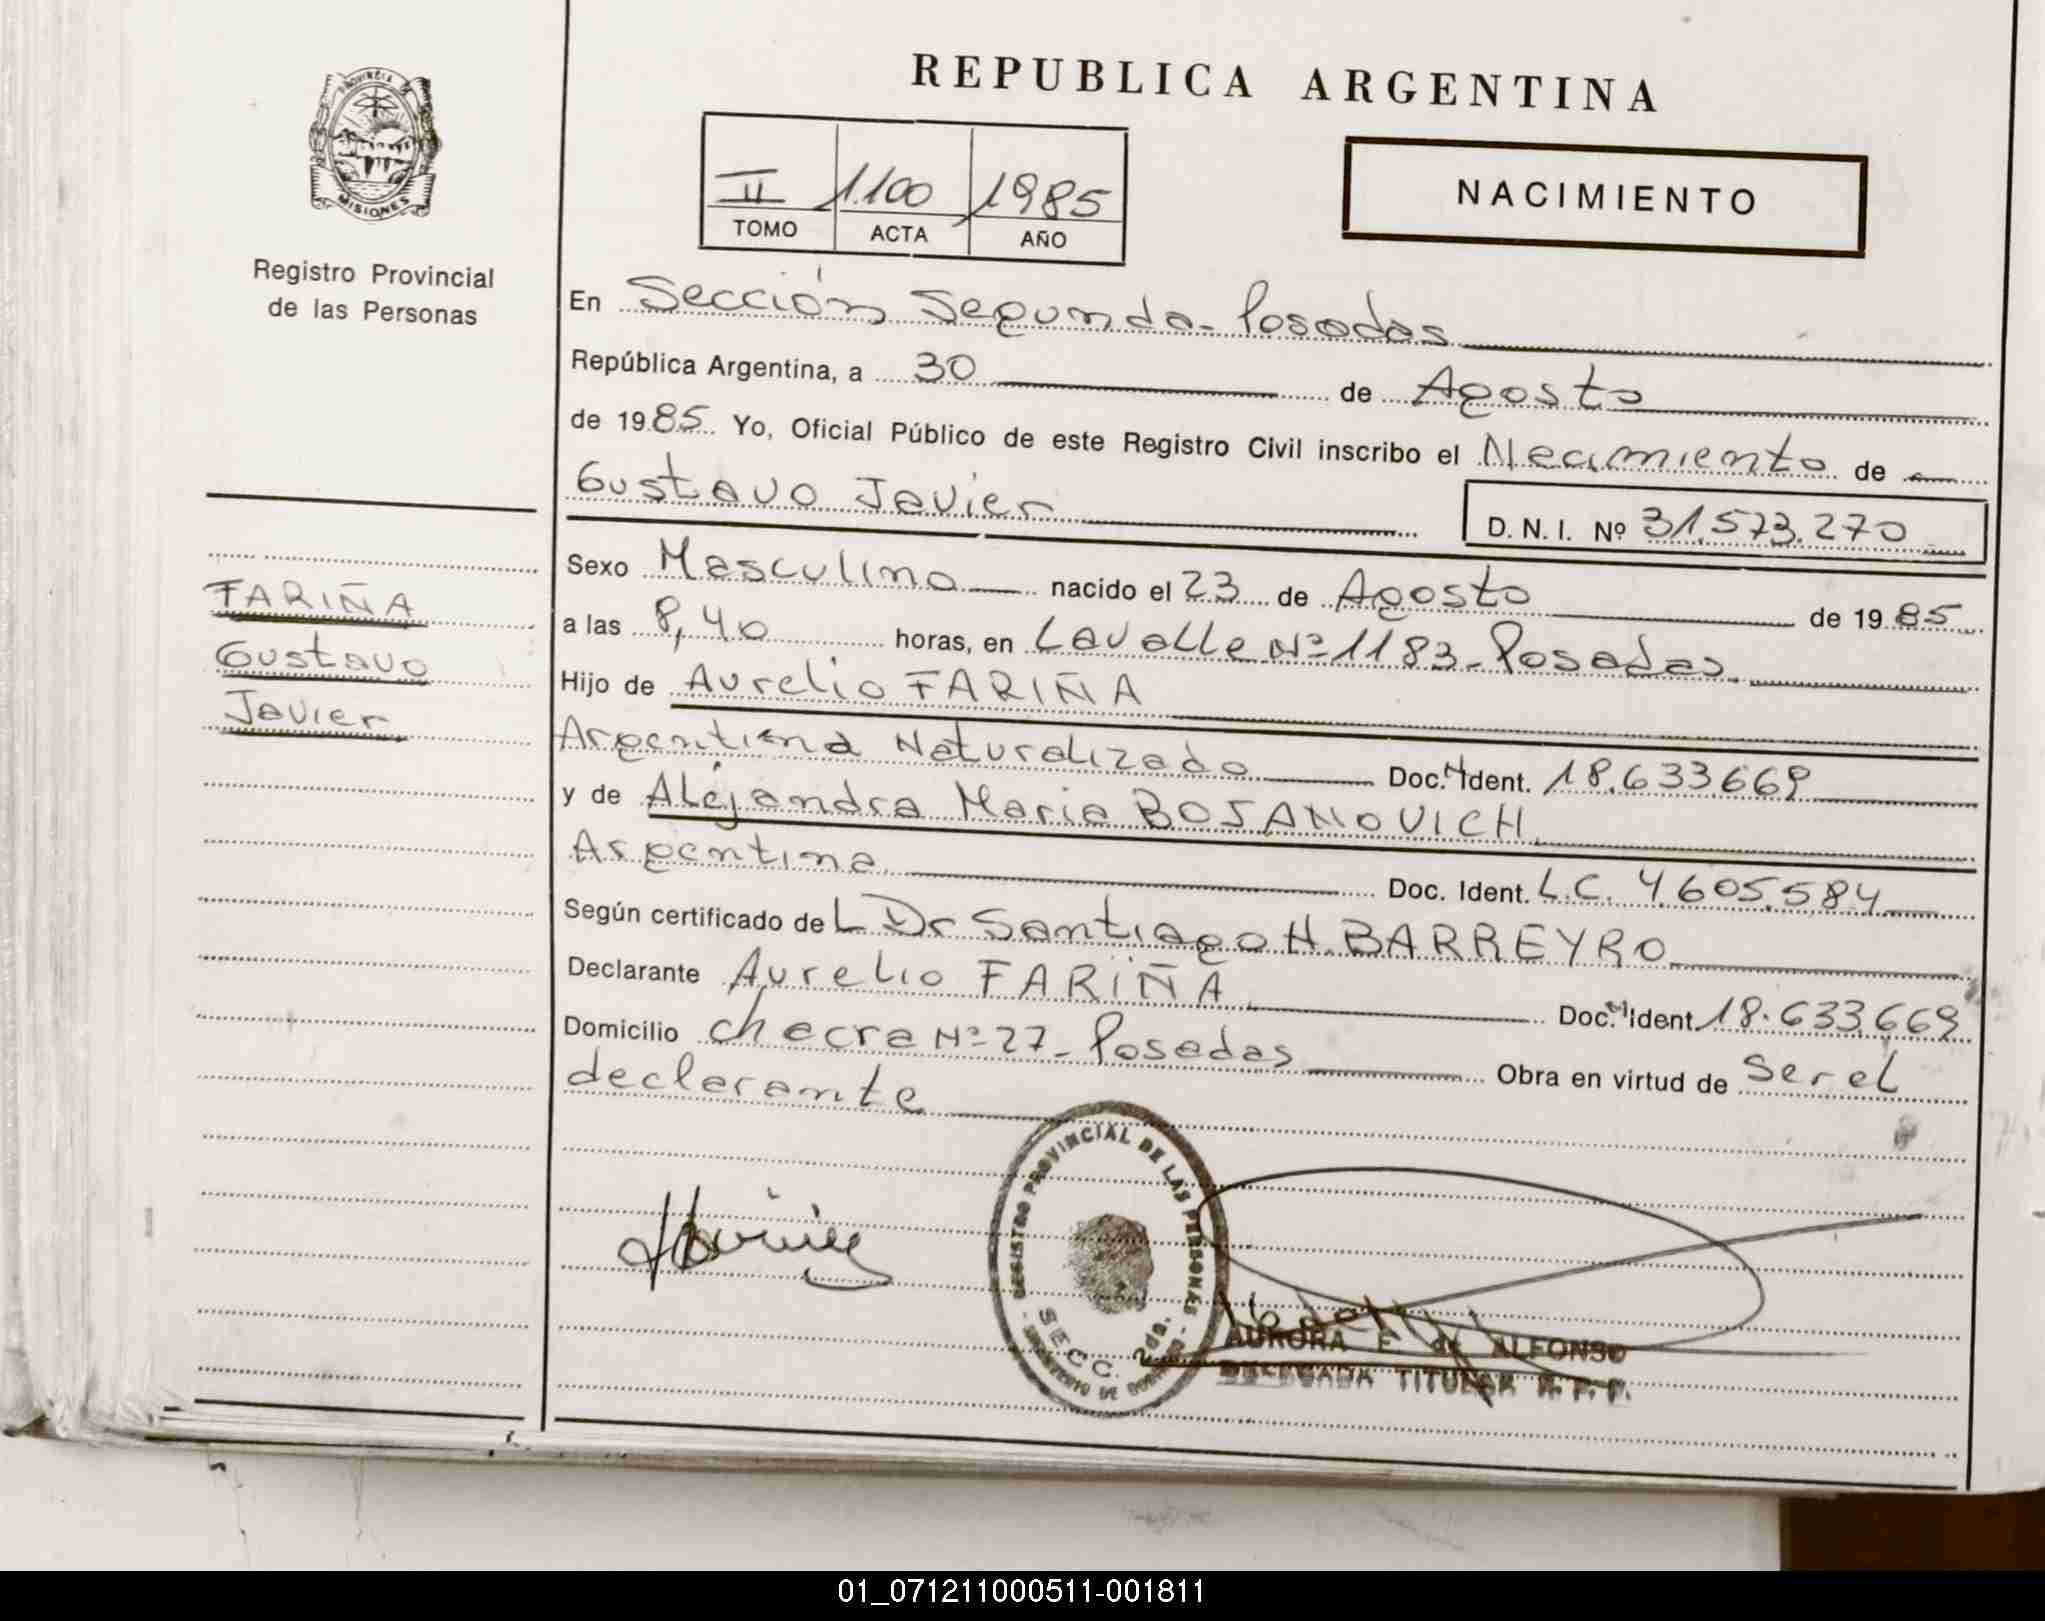 REPUBLICA ARGENTINA
PROVINCIA
MISIONES
Registro Provincial
de las Personas
II 1.100 1985
TOMO ACTA AÑO
NACIMIENTO
En Sección Segunda - Posadas
República Argentina, a 30 de Agosto
de 1985 Yo, Oficial Público de este Registro Civil inscribo el Nacimiento de
Gustavo Javier
D. N. I. Nº 31.573.270
FARIÑA
Gustavo
Javier
Sexo Masculino nacido el 23 de Agosto de 1985
a las 8,40 horas, en Lavalle Nº 1183 - Posadas.
Hijo de Aurelio FARIÑA
Naturalizado Doc. Ident. 18.633669
y de Alejandra Maria BOJANOVICH
Argentina Doc. Ident. L.C. 4.605.584
Según certificado de L Dr Santiago H. BARREYRO
Declarante Aurelio FARIÑA Doc. Ident. 18.633.669
Domicilio Chacra Nº 27 - Posadas Obra en virtud de Ser el
declarante
REGISTRO PROVINCIAL DE LAS PERSONAS
SECC. 2da.
AURORA E de ALFONSO
DELEGADA TITULAR R. P. P.
01_071211000511-001811